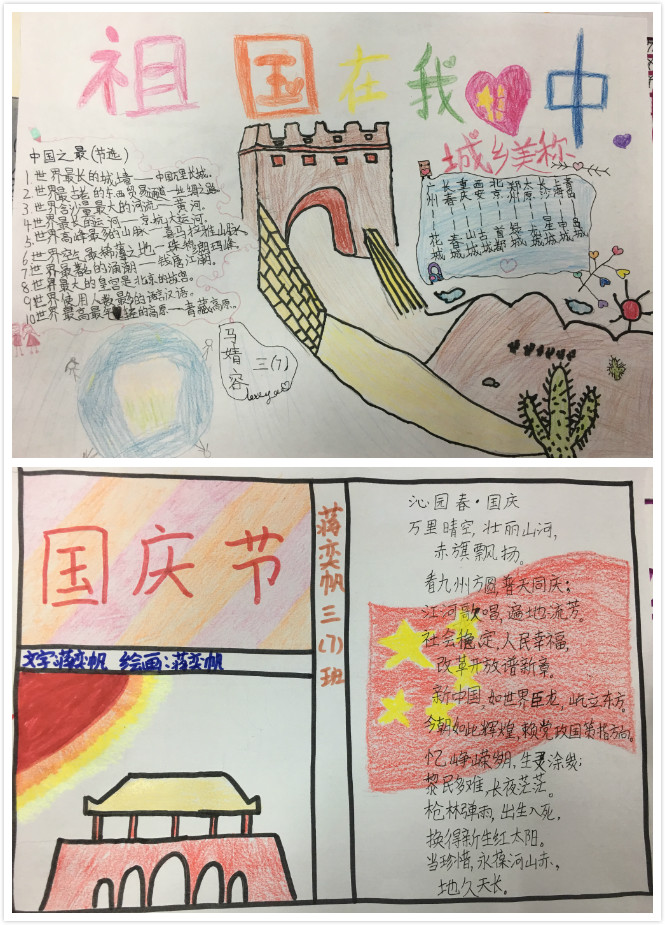 祖国在我心中
中国之最(节选)
1世界最长的城墙——中国万里长城。
2世界最古老的东西贸易通道—丝绸之路
3世界含沙量最大的河流——黄河。
4世界最长的运河——京杭大运河。
5世界高峰最多的山脉——喜马拉雅山脉
6世界空气最稀薄之地——珠穆朗玛峰
7世界最最的涌潮——钱唐江潮。
8世界最大的皇宫是北京的故宫。
9世界使用人数最多的语言汉语。
10世界最高最年轻的高原——青藏高原
城乡美称
广州——花城
长春——春城
重庆——山城
西安——古城
北京——首都
郑州——绿城
太原——龙城
长沙——星城
上海——申城
青岛——岛城
马婧容
三(7)
国庆节
文字:蒋奕帆 绘画:蒋奕帆
蒋奕帆三(7)班
沁园春·国庆
万里晴空,壮丽山河,
赤旗飘扬。
看九州方圆,普天同庆;
江河歌唱,遍地流芳。
社会稳定,人民幸福,
改革开放谱新章。
新中国,如世界巨龙,屹立东方。
今朝如此辉煌,赖党政国策指方向。
忆峥嵘岁月,生灵涂炭;
黎民多难,长夜茫茫。
枪林弹雨,出生入死,
换得新生红太阳。
当珍惜,永葆河山赤,
地久天长。